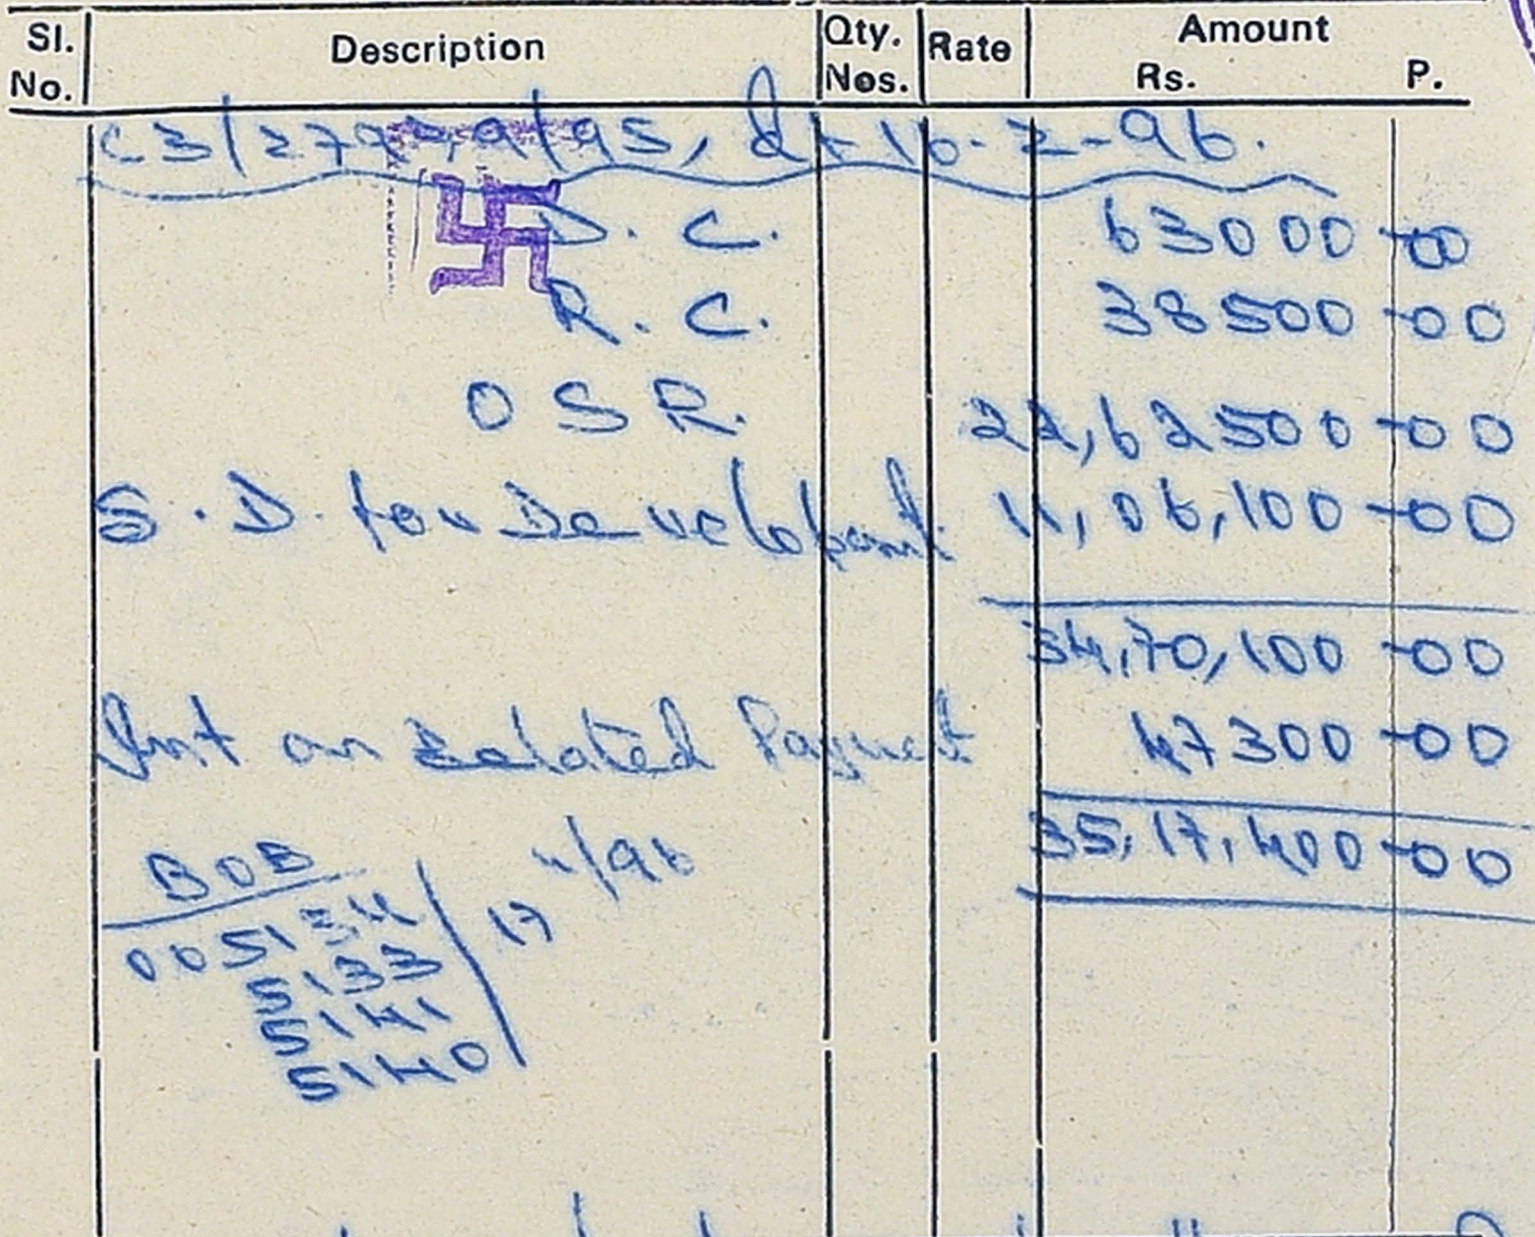 Sl. No. Description Qty. Nos. Rate Amount Rs. P.
C3/27979/95, dt 16-2-96.
D. C. 63000-00
R. C. 38500-00
O S R. 22,62500-00
S. D. for Developmt. 11,06,100-00
34,70,100-00
Int on Belated Payment 47300-00
35,17,400-00
BOB
4/96
17
0051
5133
5141
5140